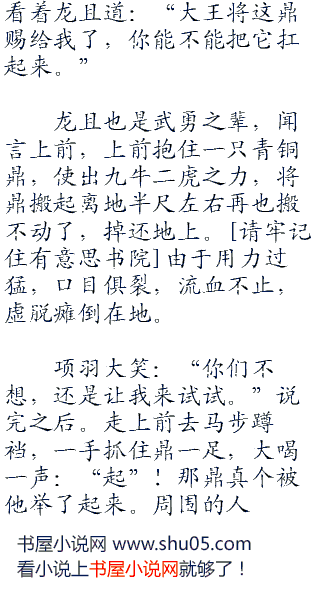 看着龙且道：“大王将这鼎
赐给我了，你能不能把它扛
起来。”
龙且也是武勇之辈，闻
言上前，上前抱住一只青铜
鼎，使出九牛二虎之力，将
鼎搬起离地半尺左右再也搬
不动了，掉还地上。[请牢记
住有意思书院]由于用力过
猛，口目俱裂，流血不止，
虚脱瘫倒在地。
项羽大笑：“你们不
想，还是让我来试试。”说
完之后。走上前去马步蹲
裆，一手抓住鼎一足，大喝
一声：“起”！那鼎真个被
他举了起来。周围的人
书屋小说网 www.shu05.com
看小说上书屋小说网就够了！